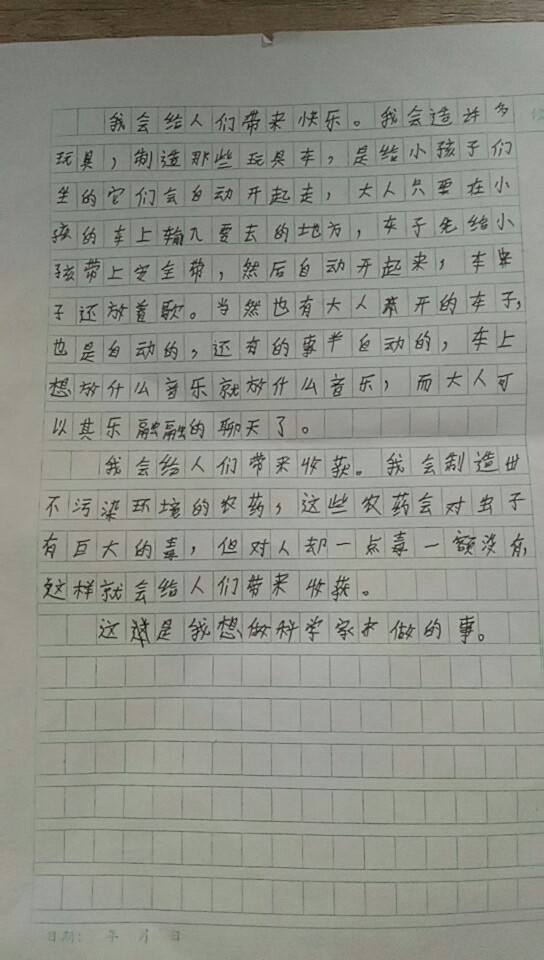 我会给人们带来快乐。我会造许多
玩具，制造那些玩具车，是给小孩子们
坐的它们会自动开起走，大人只要在小
孩的车上输入要去的地方，车子先给小
孩带上安全带，然后自动开起来，车
子还放着歌。当然也有大人来开的车子，
也是自动的，还有的事半自动的，车上
想放什么音乐就放什么音乐，而大人可
以其乐融融的聊天了。
我会给人们带来收获。我会制造出
不污染环境的农药，这些农药会对虫子
有巨大的毒，但对人却一点毒一额没有，
这样就会给人们带来收获。
这就是我想做科学家才做的事。
日期： 年 月 日